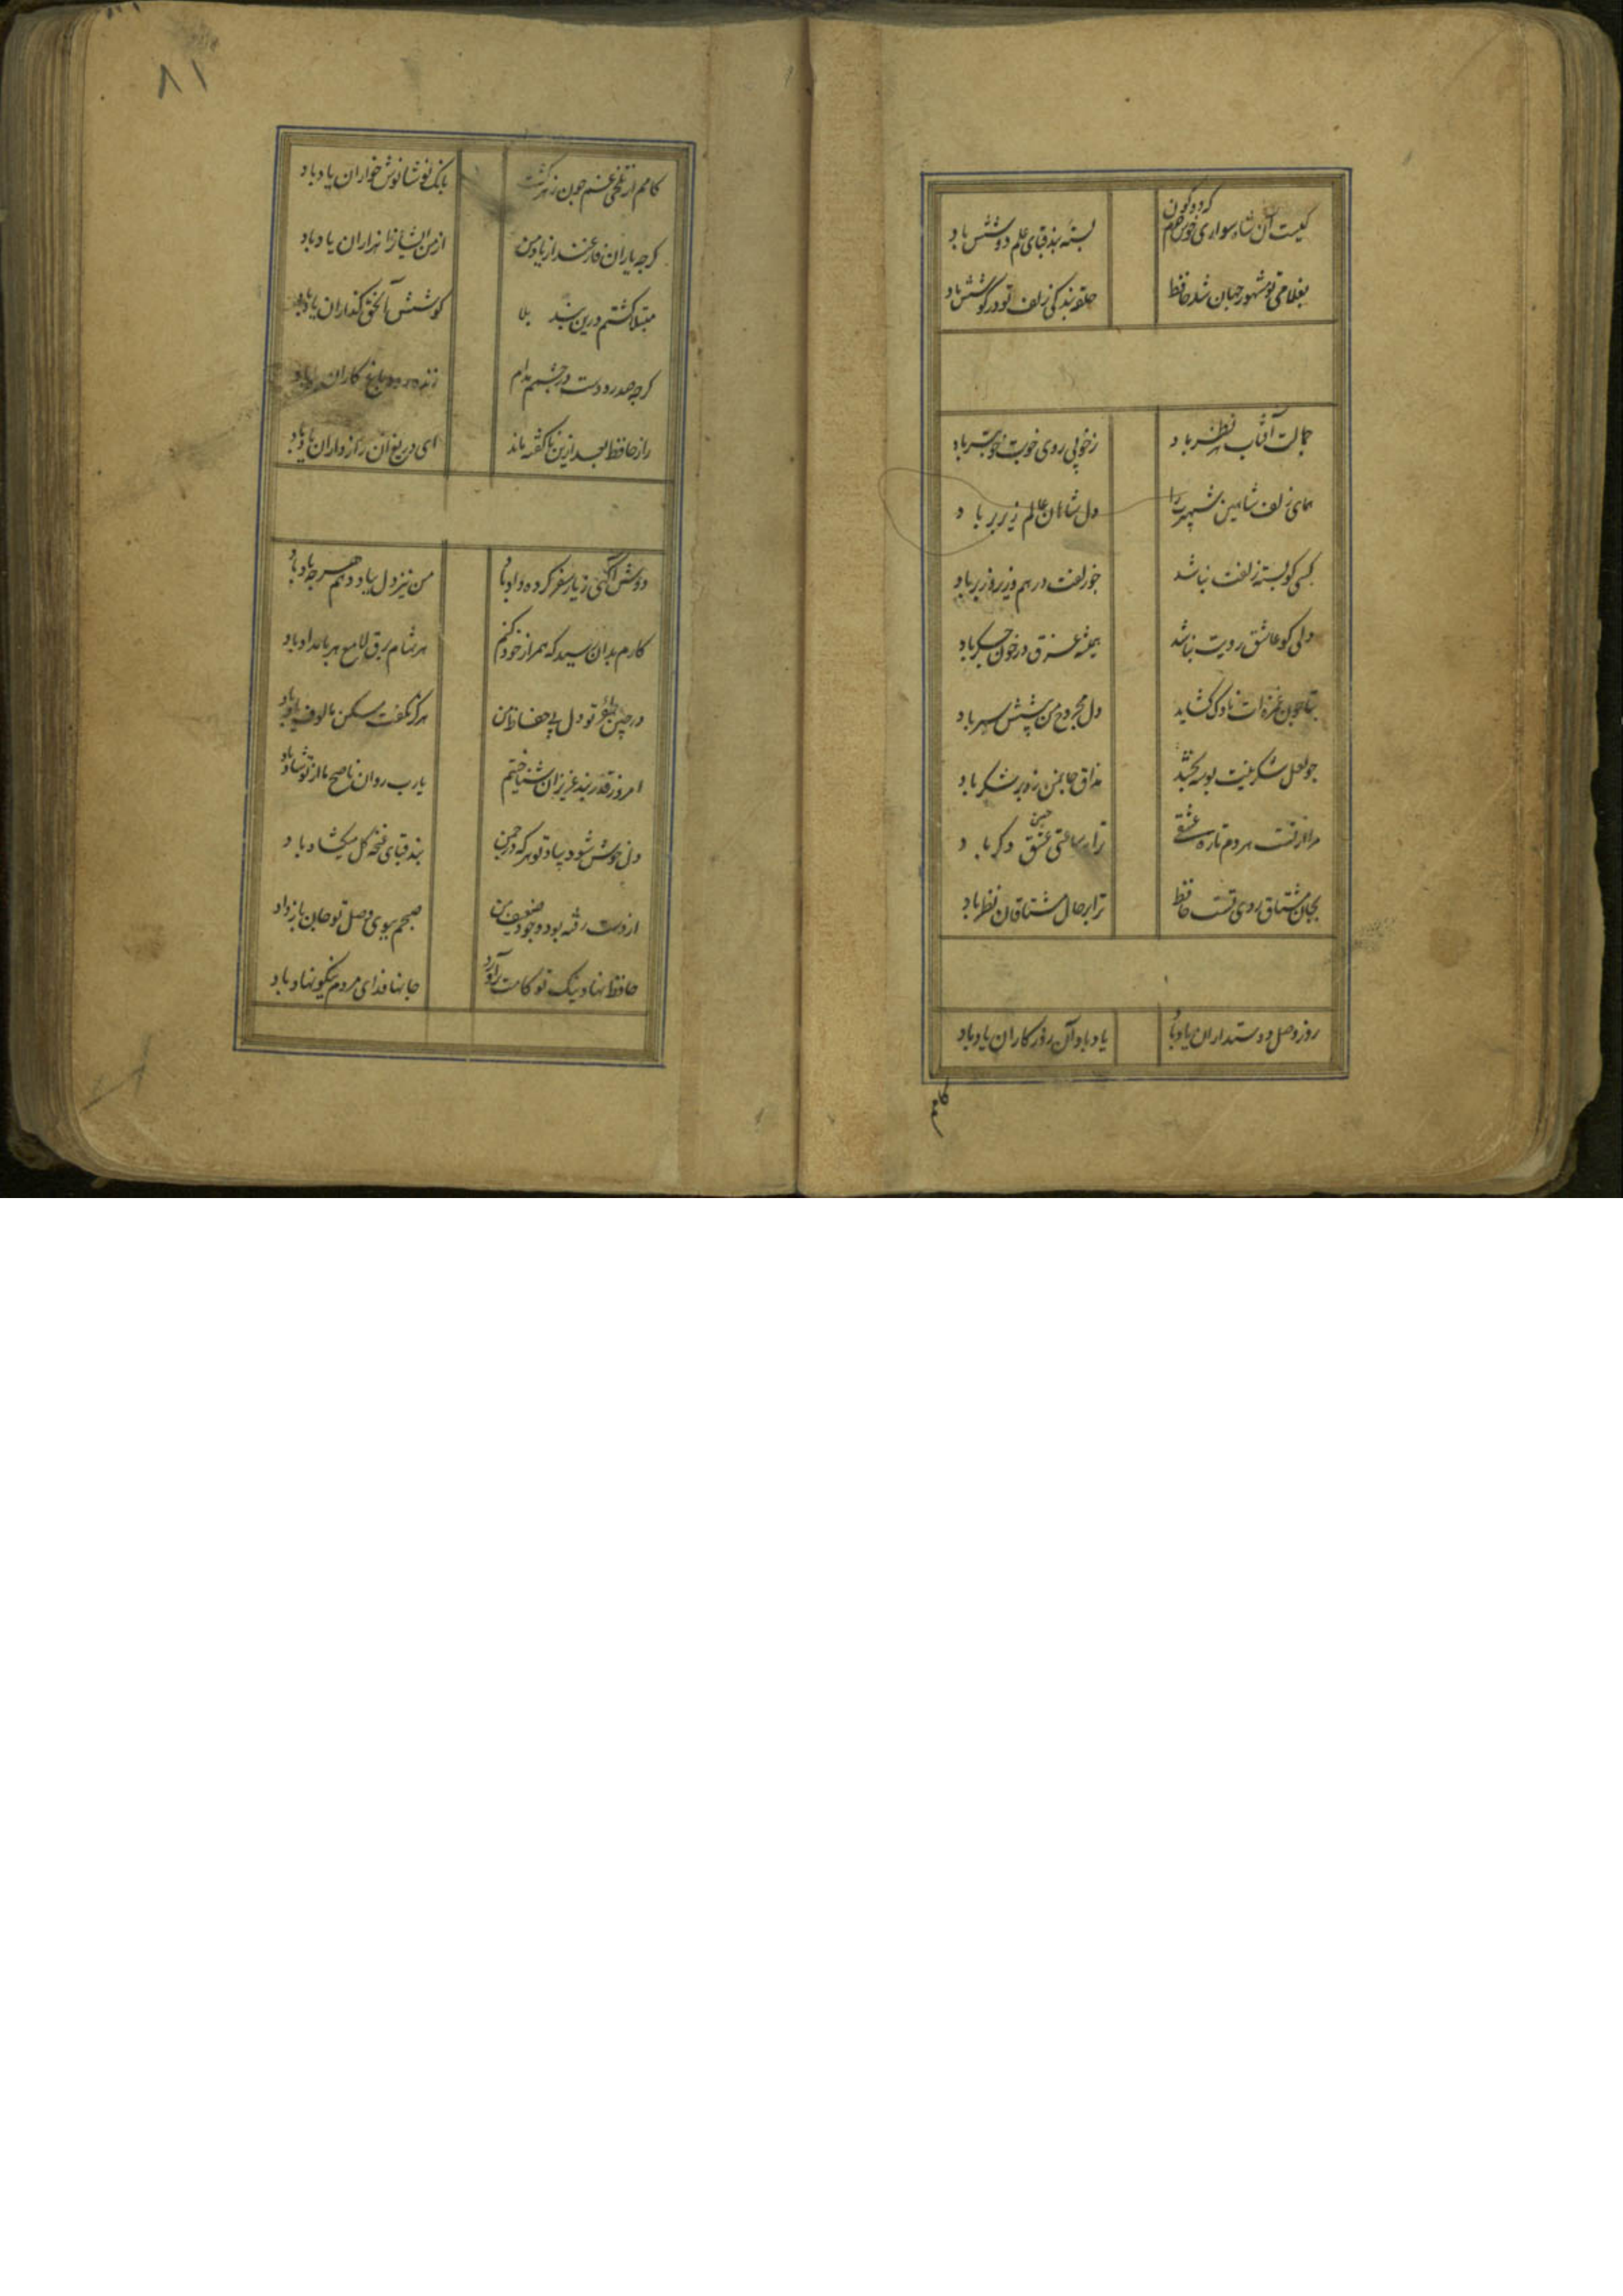 کیست آن شاه سواری خوش خرم که دو کون
بسته بند قبای علم دوشش باد
بغلامی تو مشهور جهان شد حافظ
حلقه بندکی زلف تو در کوشش باد
جمالت آفتاب هر نظر باد
ز خوبی روی خوبت خوبتر باد
همای زلف شاهین شهپرت را
دل شاهان عالم زیر پر باد
کسی کو بسته زلفت نباشد
چو زلفت درهم و زیر و زبر باد
دلی کو عاشق رویت نباشد
همیشه غرق در خون جکر باد
بتا چون غمزه ات ناوک کشاید
دل مجروح من پیشش سپر باد
چو لعل شکرینت بوسه بخشد
مذاق جان من زو پر شکر باد
مرا از تست هر دم تازه عشقی
ترا هر ساعتی حسنی دکر باد
بجان مشتاق روی تست حافظ
ترا بر حال مشتاقان نظر باد
روز وصل دوستداران یاد باد
یاد باد آن روزکاران یاد باد
۸۱
کامم از تلخی غم چون زهر کشت
بانک نوشانوش خواران یاد باد
کرچه یاران فارغند از یاد من
از من ایشانرا هزاران یاد باد
مبتلا کشتم درین بند بلا
کوشش آن حق کذاران یاد باد
کرچه صد رودست در چشمم مدام
زنده رود باغ کاران یاد باد
راز حافظ بعد ازین ناکفته ماند
ای دریغ آن رازداران یاد باد
دوش آکهی ز یار سفر کرده داد باد
من نیز دل بباد دهم هرچه باد باد
کارم بدان رسید که همراز خود کنم
هر شام برق لامع و هر بامداد باد
در چین طره تو دل بی حفاظ من
هرکز نکفت مسکن مالوف یاد باد
امروز قدر پند عزیزان شناختم
یا رب روان ناصح ما از تو شاد باد
دل خوش شود بیاد تو هر که در چمن
بند قبای غنچه کل میکشاد باد
از دست رفته بود وجود ضعیف من
صبحم ببوی وصل تو جان باز داد
حافظ نهاد نیک تو کامت برآورد
جانها فدای مردم نیکو نهاد باد